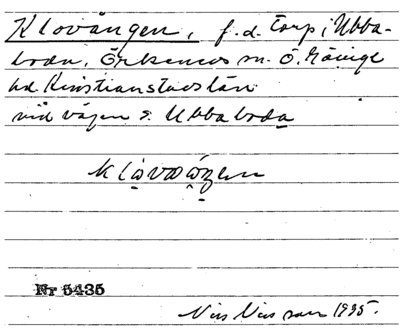 Klovången, f.d. torp i Ubba-
boda. Örkeneds sn. Ö. Göinge
hd Kristianstads län
vid vägen s. Ubbaboda
Nr 5435
Nils Nilsson 1935.